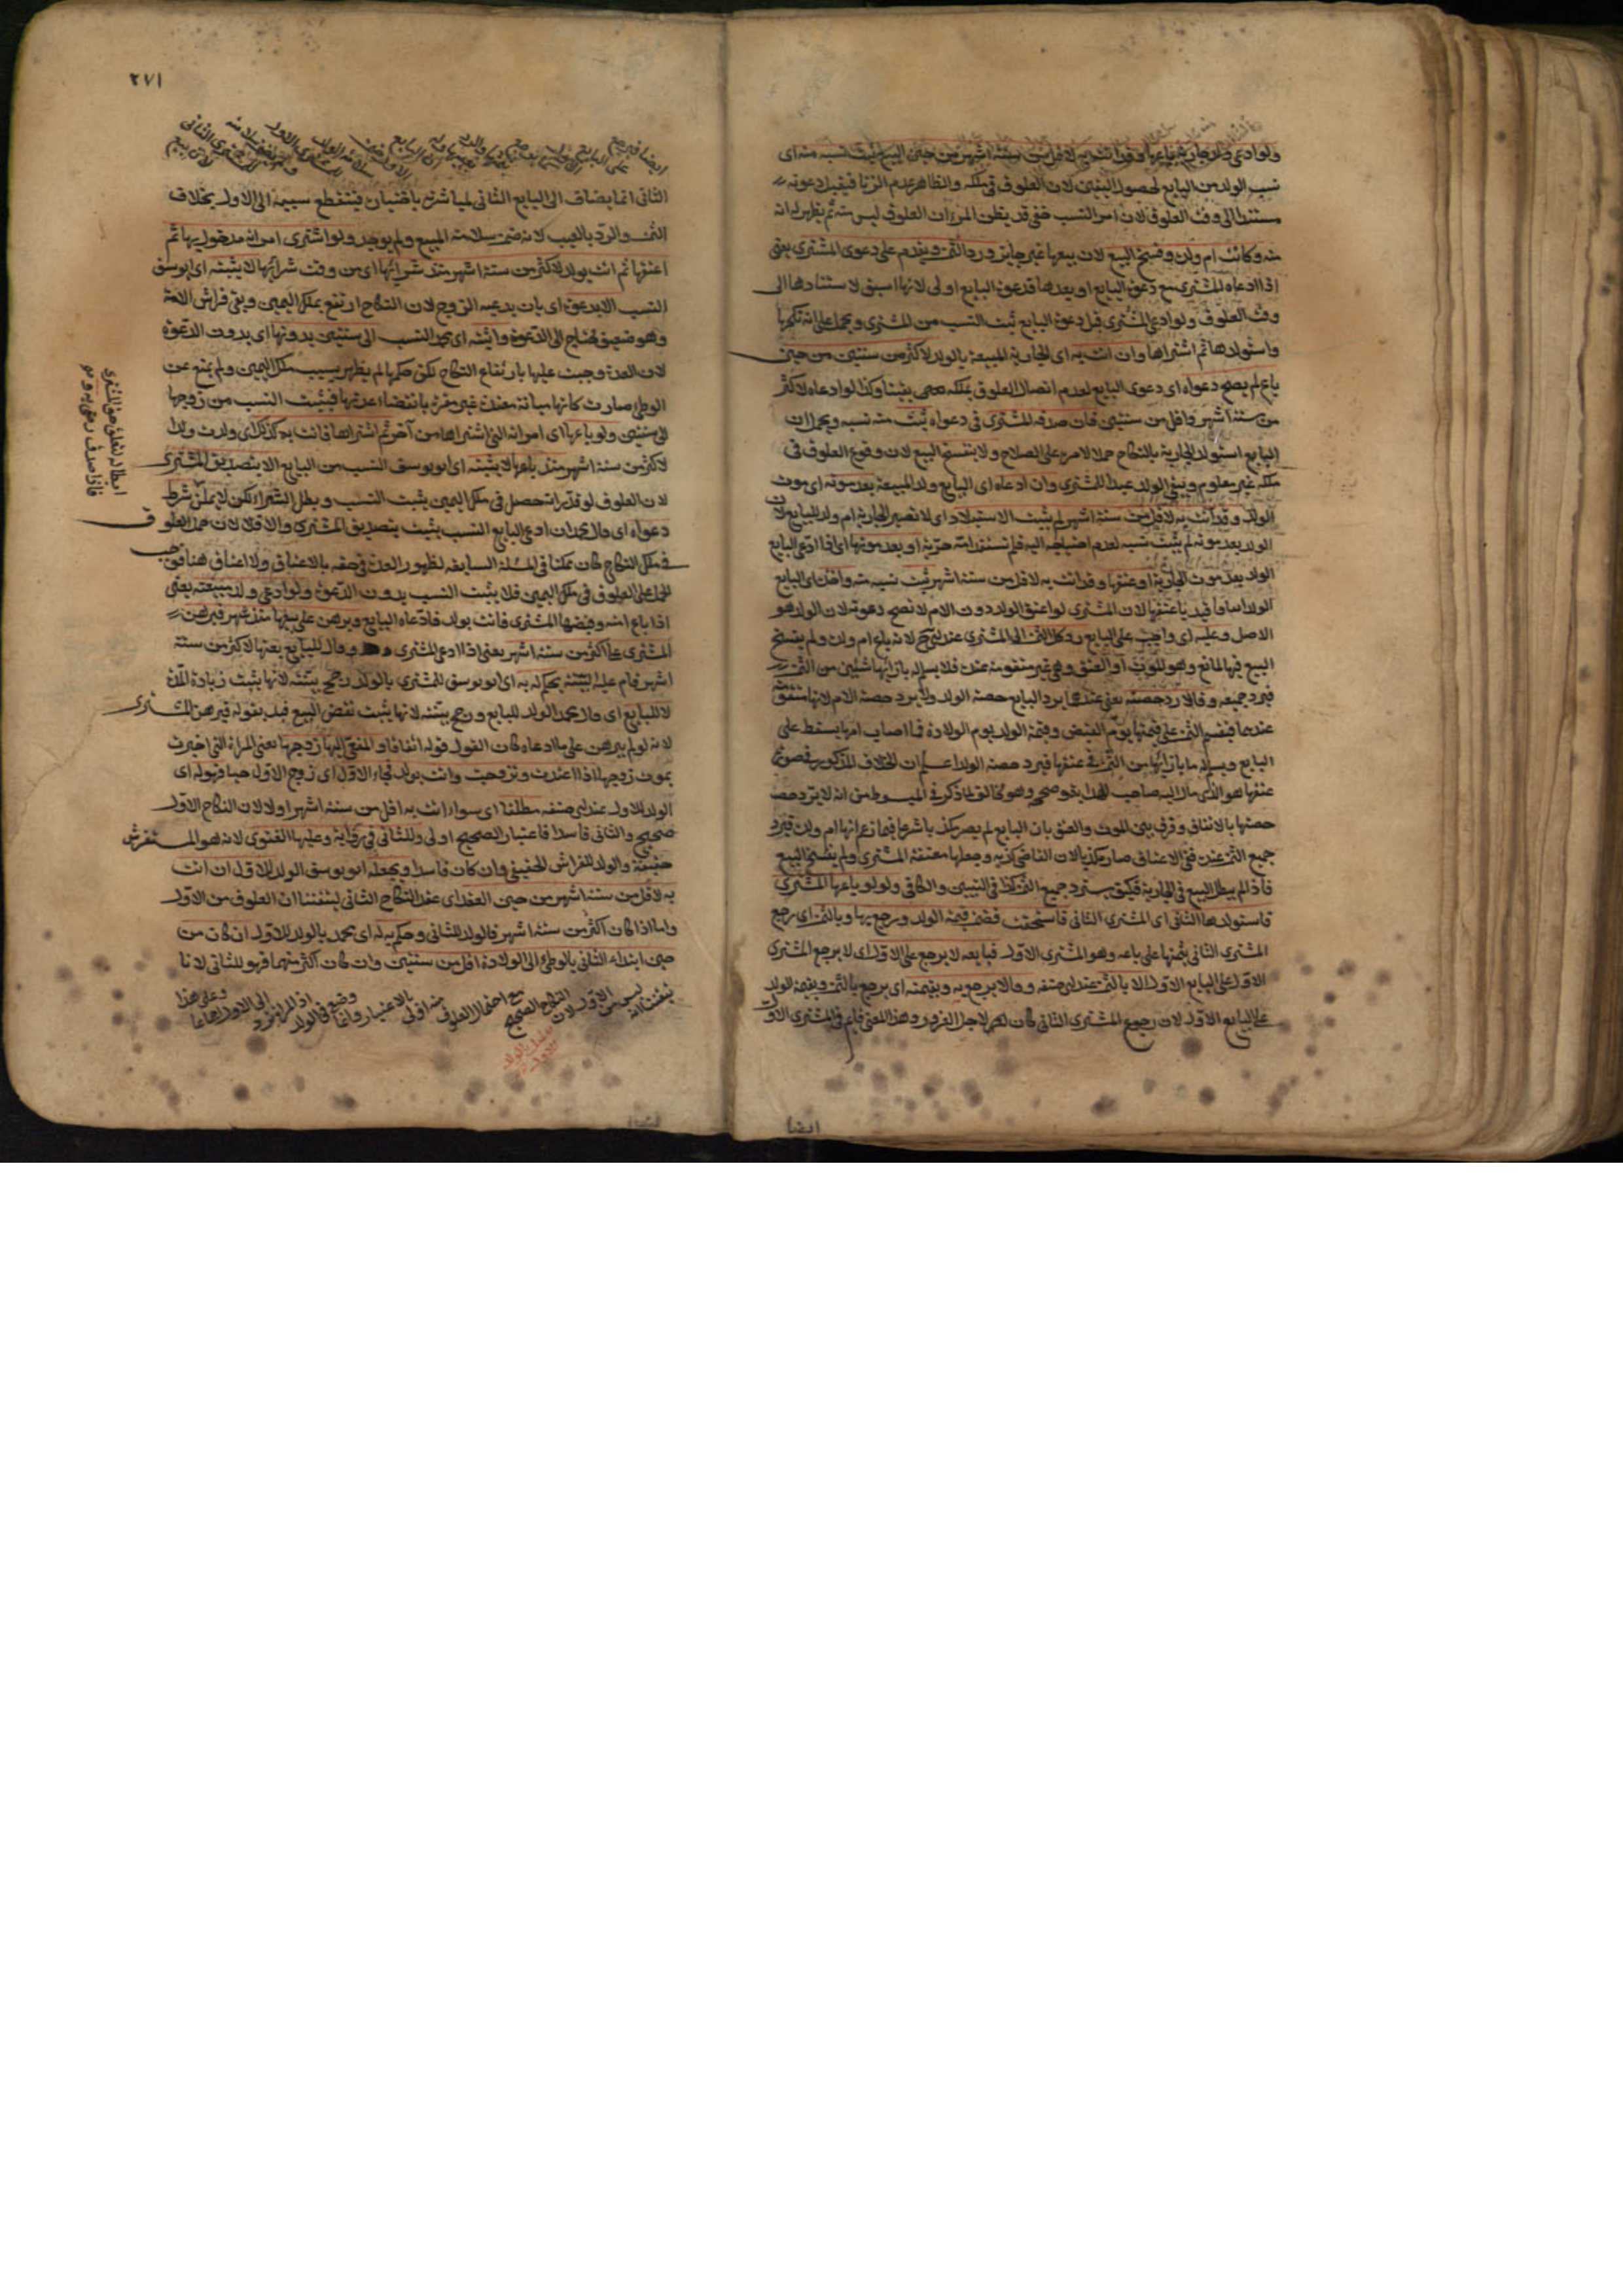 ولو ادعى ولد جارية باعها وقد اتت به لاقل من ستة اشهر من حين البيع ثبت نسبه منه اى
نسب الولد من البايع لحصول اليقين لان العلوق فى ملكه والظاهر عدم الزنا فيقبل دعوته
مستندا الى وقت العلوق لان امر النسب خفى قد يظن المرء ان العلوق ليس منه ثم يظهر له انه
منه وكانت ام ولده وفسخ البيع لان بيعها غير جايز ورد الثمن ويقدم على دعوى المشترى يعنى
اذا ادعاه المشترى مع دعوة البايع او بعدها فدعوة البايع اولى لانها اسبق لاستنادها الى
وقت العلوق ولو ادعى المشترى قبل دعوة البايع ثبت النسب من المشترى ويحمل على انه نكحها
واستولدها ثم اشتراها وان اتت به اى الجارية المبيعة بالولد لاكثر من سنتين من حين
باع لم يصح دعواه اى دعوى البايع لعدم اتصال العلوق بملكه يقينا وكذا لو ادعاه لاكثر
من ستة اشهر واقل من سنتين فان صدقه المشترى فى دعواه ثبت منه نسبه ويحمل ان
البايع استولد الجارية بالنكاح حملا لامره على الصلاح ولا ينفسخ البيع لان وقوع العلوق فى
ملكه غير معلوم ويبقى الولد عبدا للمشترى وان ادعاه اى البايع ولد المبيعة بعد موته اى موت
الولد وقد اتت به لاقل من ستة اشهر لم يثبت الاستيلاد اى لا تصير الجارية ام ولد للبايع لان
الولد بعد موته لم يثبت نسبه لعدم احتياجه اليه فلم تستفد امه حرية او بعد موتها اى اذا ادعى البايع
الولد بعد موت الجارية او عتقها وقد اتت به لاقل من ستة اشهر ثبت نسبه منه واخذه اى البايع
الولد انما قيد باعتقها لان المشترى لو اعتق الولد دون الام لا تصح دعوته لان الولد هو
الاصل وعليه اى واجب على البايع رد كل الثمن الى المشترى عند ابى ح لانه باع ام ولده ولم يفسخ
البيع فيها لمانع وهو الموت او العتق وهى غير متقومة عنده فلا يسلم له بازائها شئ من الثمن
فيرد جميعه وقالا رد حصته يعنى عندهما يرد البايع حصة الولد ولا يرد حصة الام لانها متقومة
عندهما فيقسم الثمن على قيمتها يوم القبض وقيمة الولد يوم الولادة فما اصاب امها يسقط على
البايع ويسلم له ما بازائها من الثمن فى عتقها فيرد حصة الولد اعلم ان الخلاف المذكور فى صورة
عتقها هو الذى مال اليه صاحب الهداية وصححه وهو مخالف لما ذكر فى المبسوط من انه لا يرد حصة
حصتها بالاتفاق وفرق بين الموت والعتق بان البايع لم يصر مكذبا شرعا فيما زعم انها ام ولده فيرد
جميع الثمن عنده ففى الاعتاق صار مكذبا لان القاضى كذبه وجعلها معتقة المشترى ولم يفسخ البيع
فاذا لم يبطل البيع فى الجارية فكيف يسترد جميع الثمن كذا فى التبيين والكافى ولو باعها المشترى
فاستولدها الثانى اى المشترى الثانى فاستحقت فضمن قيمة الولد ويرجع بها وبالثمن اى يرجع
المشترى الثانى بقيمتها على بايعه وهو المشترى الاول فبايعه لا يرجع على الاول اى لا يرجع المشترى
الاول على البايع الاول الا بالثمن عند ابى حنيفه وقالا يرجع به وبقيمته اى يرجع بالثمن وبقيمة الولد
على البايع الاول لان رجوع المشترى الثانى كان لاجل الغرور وهذا المعنى قايم فى المشترى الاول
ايضا
٢٧١
ايضا فيرجع
على البايع
الثانى انما يضاف الى البايع الثانى لمباشرته باختياره فينقطع سببية الى الاول بخلاف
الثمن والرد بالعيب لانه ضمن سلامة المبيع ولم يوجد ولو اشترى امراته مدخول بها ثم
اعتقها ثم اتت بولد لاكثر من ستة اشهر منذ شرائها اى من وقت شرائها لا يثبته اى ابو يوسف
النسب الا بدعوة اى بان يدعيه الزوج لان النكاح ارتفع بملك اليمين وبقى فراش الامة
وهو ضعيف يحتاج الى الدعوة واثبته اى محمد النسب الى سنتين بدونها اى بدون الدعوة
لان العدة وجبت عليها بارتفاع النكاح لكن حكمها لم يظهر بسبب ملك اليمين ولم يمنع عن
الوطئ صارت كانها مبانة معتدة غير مقرة بانقضاء عدتها فيثبت النسب من زوجها
الى سنتين ولو باعها اى امراته التى اشتراها من آخر ثم اشتراها فاتت به كذلك اى ولدت ولدا
لاكثر من ستة اشهر منذ باعها لا يثبته اى ابو يوسف النسب من البايع الا بتصديق المشترى
لان العلوق لو قدر انه حصل فى ملك اليمين يثبت النسب ويبطل الشراء لكن لا يمكن شرط
دعواه اى وقال محمد ان ادعى البايع النسب يثبت بتصديق المشترى والا فلا لان حمل العلوق
فى ملك النكاح كان ممكنا فى المسئلة السابقة لظهور العدة فى حقه بالاعتاق ولا اعتاق هنا فوجب
الحمل على العلوق فى ملك اليمين فلا يثبت النسب بدون الدعوة ولو ادعى ولد مبيعته يعنى
اذا باع امته وقبضها المشترى فاتت بولد فادعاه البايع وبرهن على بيعها منذ شهر فبرهن
المشترى على اكثر من ستة اشهر يعنى اذا ادعى المشترى وقال للبايع بعتها لاكثر من ستة
اشهر فاقام عليه البينة يحكم له به اى ابو يوسف للمشترى بالولد رجح بينته لانها يثبت زيادة المدة
لا للبايع اى قال محمد الولد للبايع ورجح بينته لانها يثبت نقض البيع قيد بقوله فبرهن المشترى
لانه لو لم يبرهن على ما ادعاه كان القول قوله اتفاقا والمنعى اليها زوجها يعنى المراة التى اخبرت
بموت زوجها اذا اعتدت وتزوجت واتت بولد فجاء الاول اى زوج الاول حيا فهو له اى
الولد للاول عند ابى حنيفه مطلقا اى سواء اتت به اقل من ستة اشهر او لا لان النكاح الاول
صحيح والثانى فاسد فاعتبار الصحيح اولى وللثانى فى رواية وعليها الفتوى لانه هو المستفرش
حقيقة والولد للفراش الحقيقى وان كان فاسدا ويجعله ابو يوسف الولد للاول ان اتت
به لاقل من ستة اشهر من حين العقد اى عقد النكاح الثانى لتيقننا ان العلوق من الاول
واما اذا كان اكثر من ستة اشهر فالولد للثانى وحكم به له اى محمد بالولد للاول ان كان من
حين ابتداء الثانى بالوطئ الى الولادة اقل من سنتين وان كان اكثر منهما فهو للثانى لانا
تيقنا انه ليس من الاول لان النكاح الصحيح مع احتمال العلوق منه اولى بالاعتبار وانما وضع فى الولد